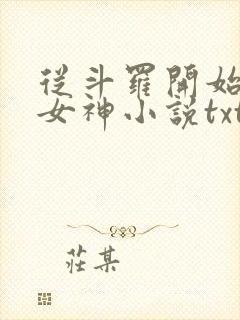 從斗羅開始
女神小說txt
莊某